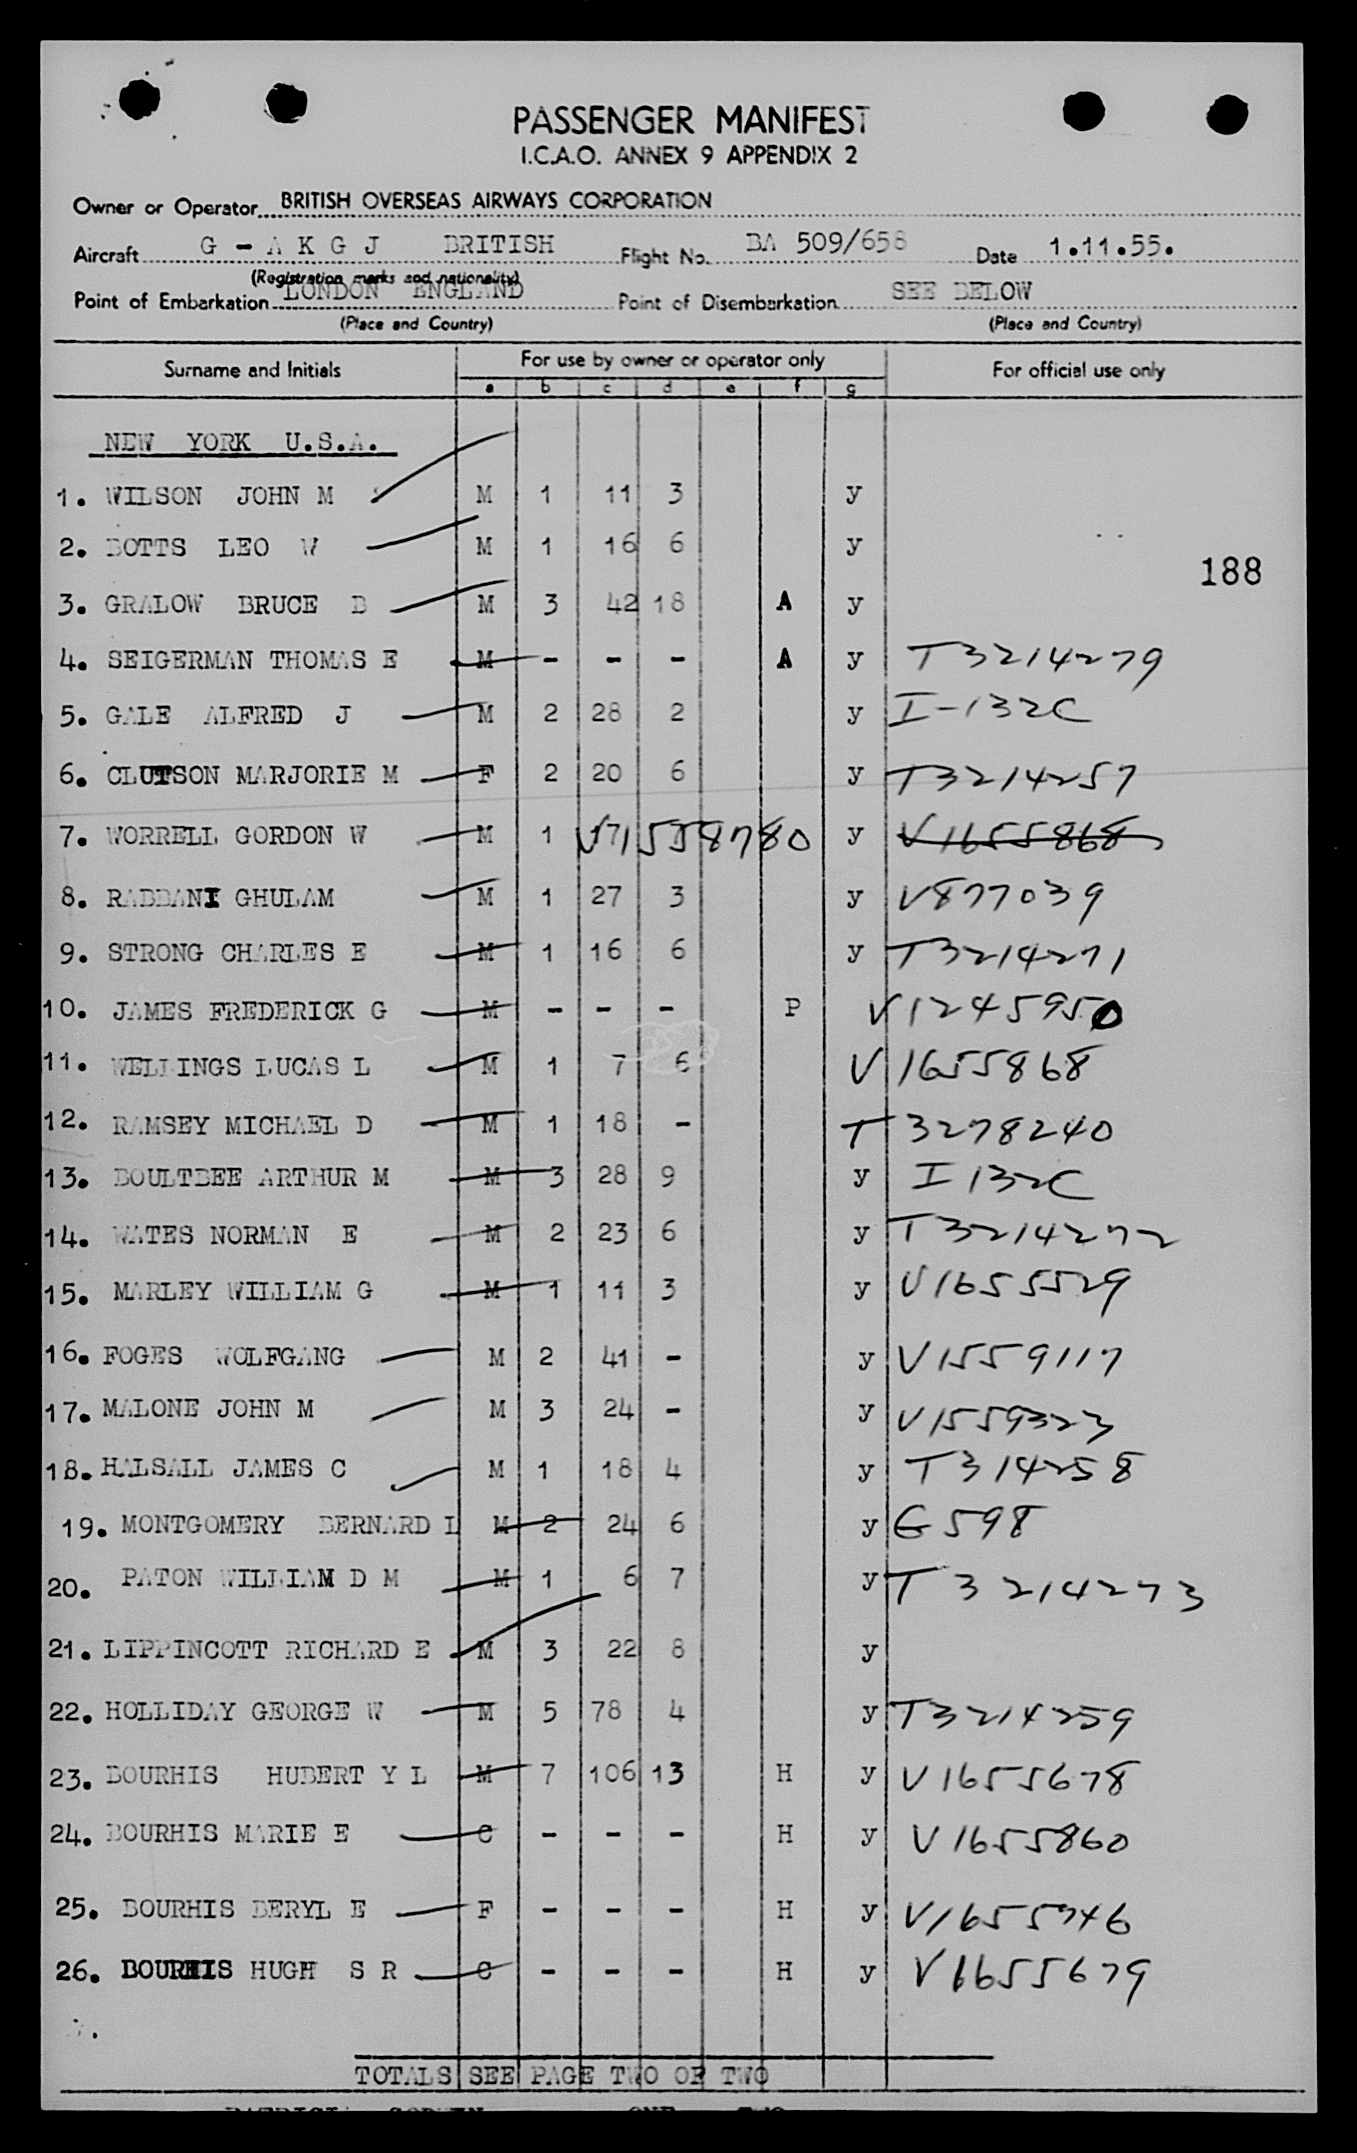 PASSENGER MANIFEST
I.C.A.O. ANNEX 9 APPENDIX 2
Owner or Operator BRITISH OVERSEAS AIRWAYS CORPORATION
Aircraft G - A K G J BRITISH Flight No. BA 509/658 Date 1.11.55.
(Registration marks and nationality)
Point of Embarkation LONDON ENGLAND Point of Disembarkation SEE BELOW
(Place and Country) (Place and Country)
Surname and Initials For use by owner or operator only For official use only
a b c d e f g
NEW YORK U.S.A.
1. WILSON JOHN M M 1 11 3 y
2. BOTTS LEO W M 1 16 6 y
188
3. GRALOW BRUCE B M 3 42 18 A y
4. SEIGERMAN THOMAS E M - - - A y T3214279
5. GALE ALFRED J M 2 28 2 y I-132C
6. CLUTSON MARJORIE M F 2 20 6 y T3214257
7. WORRELL GORDON W M 1 V1558780 y V1655868
8. RABBANI GHULAM M 1 27 3 y V877039
9. STRONG CHARLES E M 1 16 6 y T3214271
10. JAMES FREDERICK G M - - - P V1245950
11. WELLINGS LUCAS L M 1 7 6 V1655868
12. RAMSEY MICHAEL D M 1 18 - T3278240
13. BOULTBEE ARTHUR M M 3 28 9 y I 132C
14. WATES NORMAN E M 2 23 6 y T3214272
15. MARLEY WILLIAM G M 1 11 3 y V1655529
16. FOGES WOLFGANG M 2 41 - y V1559117
17. MALONE JOHN M M 3 24 - y V1559323
18. HALSALL JAMES C M 1 18 4 y T314258
19. MONTGOMERY BERNARD L M 2 24 6 y G598
20. PATON WILLIAM D M M 1 6 7 y T3214273
21. LIPPINCOTT RICHARD E M 3 22 8 y
22. HOLLIDAY GEORGE W M 5 78 4 y T3214259
23. BOURHIS HUBERT Y L M 7 106 13 H y V1655678
24. BOURHIS MARIE E C - - - H y V1655860
25. BOURHIS BERYL E F - - - H y V1655746
26. BOURHIS HUGH S R C - - - H y V1655679
TOTALS SEE PAGE TWO OF TWO